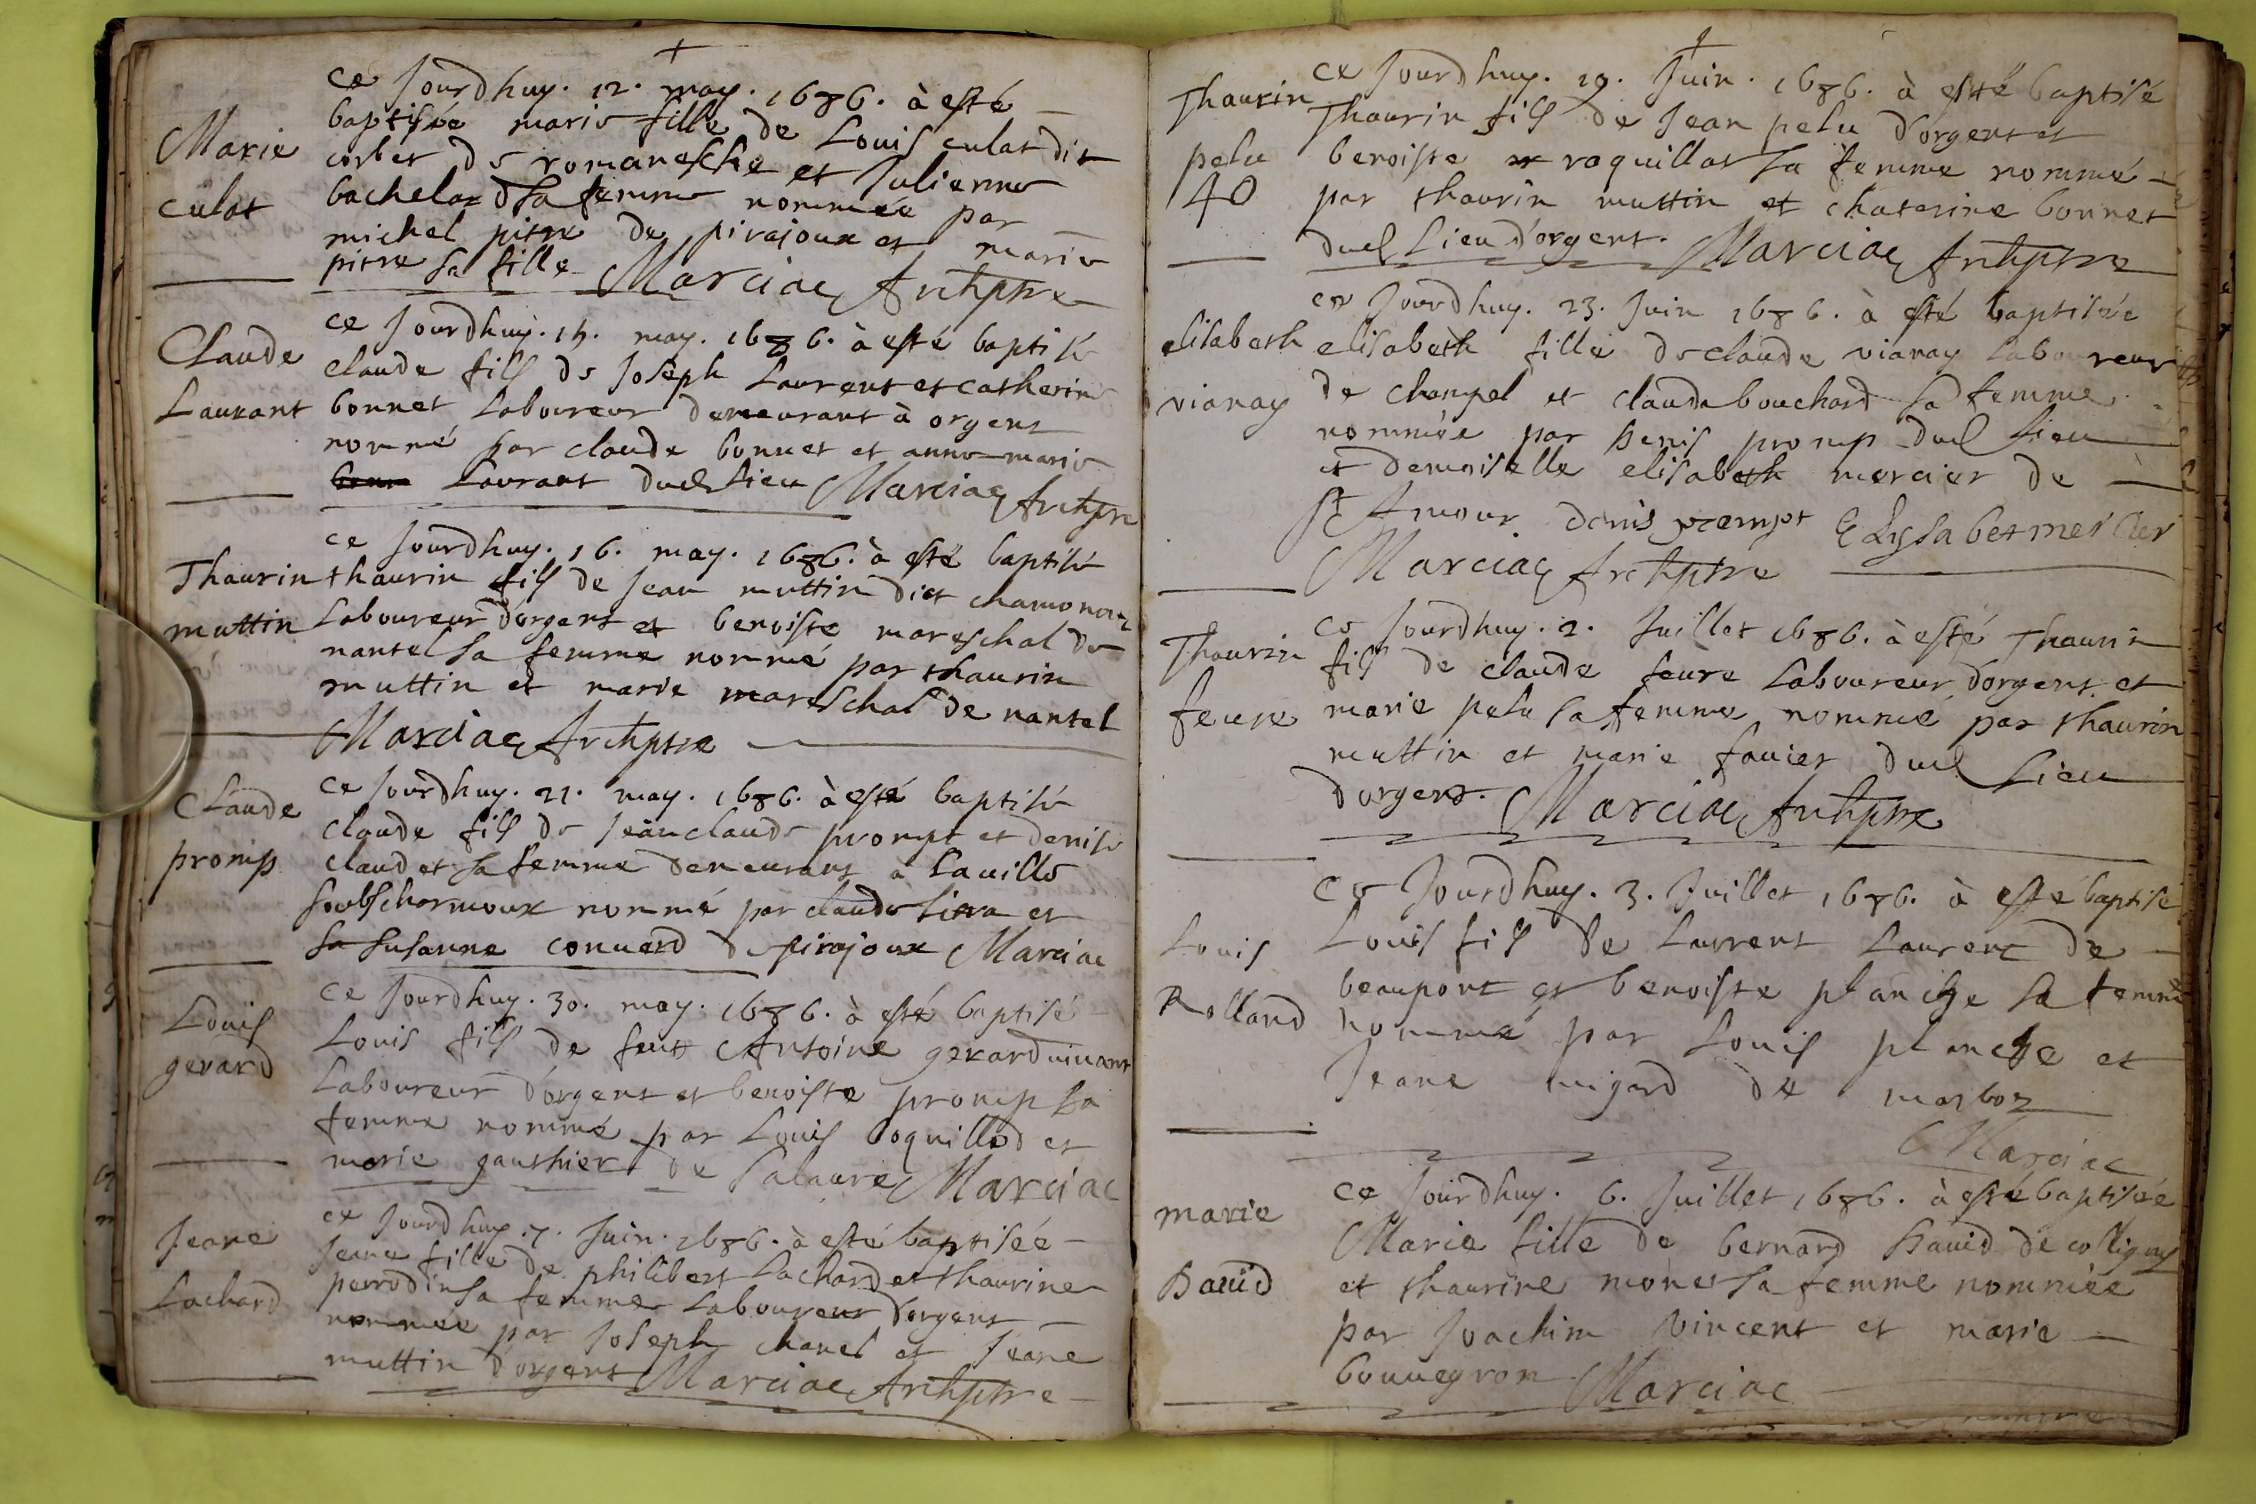 Marie
culat
ce Jourdhuy. 12. may. 1686. à esté
baptisée marie fille de Louis culat dit
corbet de romanesche et Julienne
bachelard sa femme nommée par
michel pitre de pirajoux et marie
pitre sa fille Marciac Archptre
Claude
Laurant
ce Jourdhuy. may. 1686. à esté baptisé
claude fils de Joseph Laurent et catherine
bonnet Laboureur demeurant à orgent
nommé par claude bonnet et anne marie
Laurant dud Lieu Marciac Archptre
Thaurin
muttin
ce Jourdhuy. 16. may. 1686. à esté baptisé
thaurin fils de Jean muttin dict
Laboureur dorgent et benoiste mareschal de
nantel sa femme nommé par thaurin
muttin et marie mareschal de nantel
Marciac Archptre
Claude
promp
ce Jourdhuy. 21. may. 1686. à esté baptisé
claude fils de Jean claude prompt et denise
claudet sa femme demeurant à Laville
soubscharmoux nommé par claude et
sa susanne convard de pirajoux Marciac
Louis
gerard
ce Jourdhuy. 30. may. 1686. à esté baptisé
Louis fils de feut Antoine gerard vivant
Laboureur dorgent et benoiste promp sa
femme nommé par Louis et
marie gauthier de Salavre Marciac
Jeane
Lachard
ce Jourdhuy. 7. Juin. 1686. à esté baptisée
Jeane fille de philibert Lachard et thaurine
perrodin sa femme Laboureur dorgent
nommée par Joseph chanel et Jeane
muttin dorgent Marciac Archptre
Thaurin
pelu
40
ce Jourdhuy. 19. Juin. 1686. à esté baptisé
Thaurin fils de Jean pelu dorgent et
benoiste roquillat sa femme nommé
par thaurin muttin et chaterine bonnet
dud Lieu dorgent. Marciac Archptre
elisabeth
vianay
ce Jourdhuy. 23. Juin 1686. à esté baptisée
elisabeth fille de claude vianay Laboureur
de changel et clauda bouchard sa femme
nommée par Denis promp dud Lieu
et demoiselle elisabeth mercier de
St Amour denis prompt Elysabet mercier
Marciac Archptre
Thaurin
feure
Ce Jourdhuy. 2. Juillet 1686. à esté Thaurin
fils de claude feure Laboureur dorgent et
marie pelu sa femme nommé par thaurin
muttin et marie favier dud Lieu
dorgent. Marciac Archptre
Louis
Rolland
Ce Jourdhuy. 3. Juillet 1686. à esté baptisé
Louis fils de Laurent Laurent de
beauport et benoiste planche sa femme
nommé par Louis planche et
Jeane migard de marboz
Marciac
marie
David
ce Jourdhuy. 6. Juillet 1686. à esté baptisée
Marie fille de bernard David de colligny
et thaurine monet sa femme nommée
par Joachim vincent et marie
Marciac